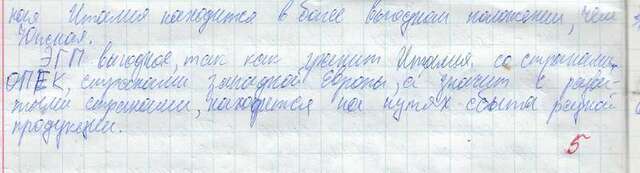 ная Италия находится в более выгодном положении, чем
Южная.
ЭГП выгодное, так как граничит Италия, со странами
ОПЕК, странами западной Европы, а значит с разви-
тыми странами, находится на путях сбыта разной
продукции.
5